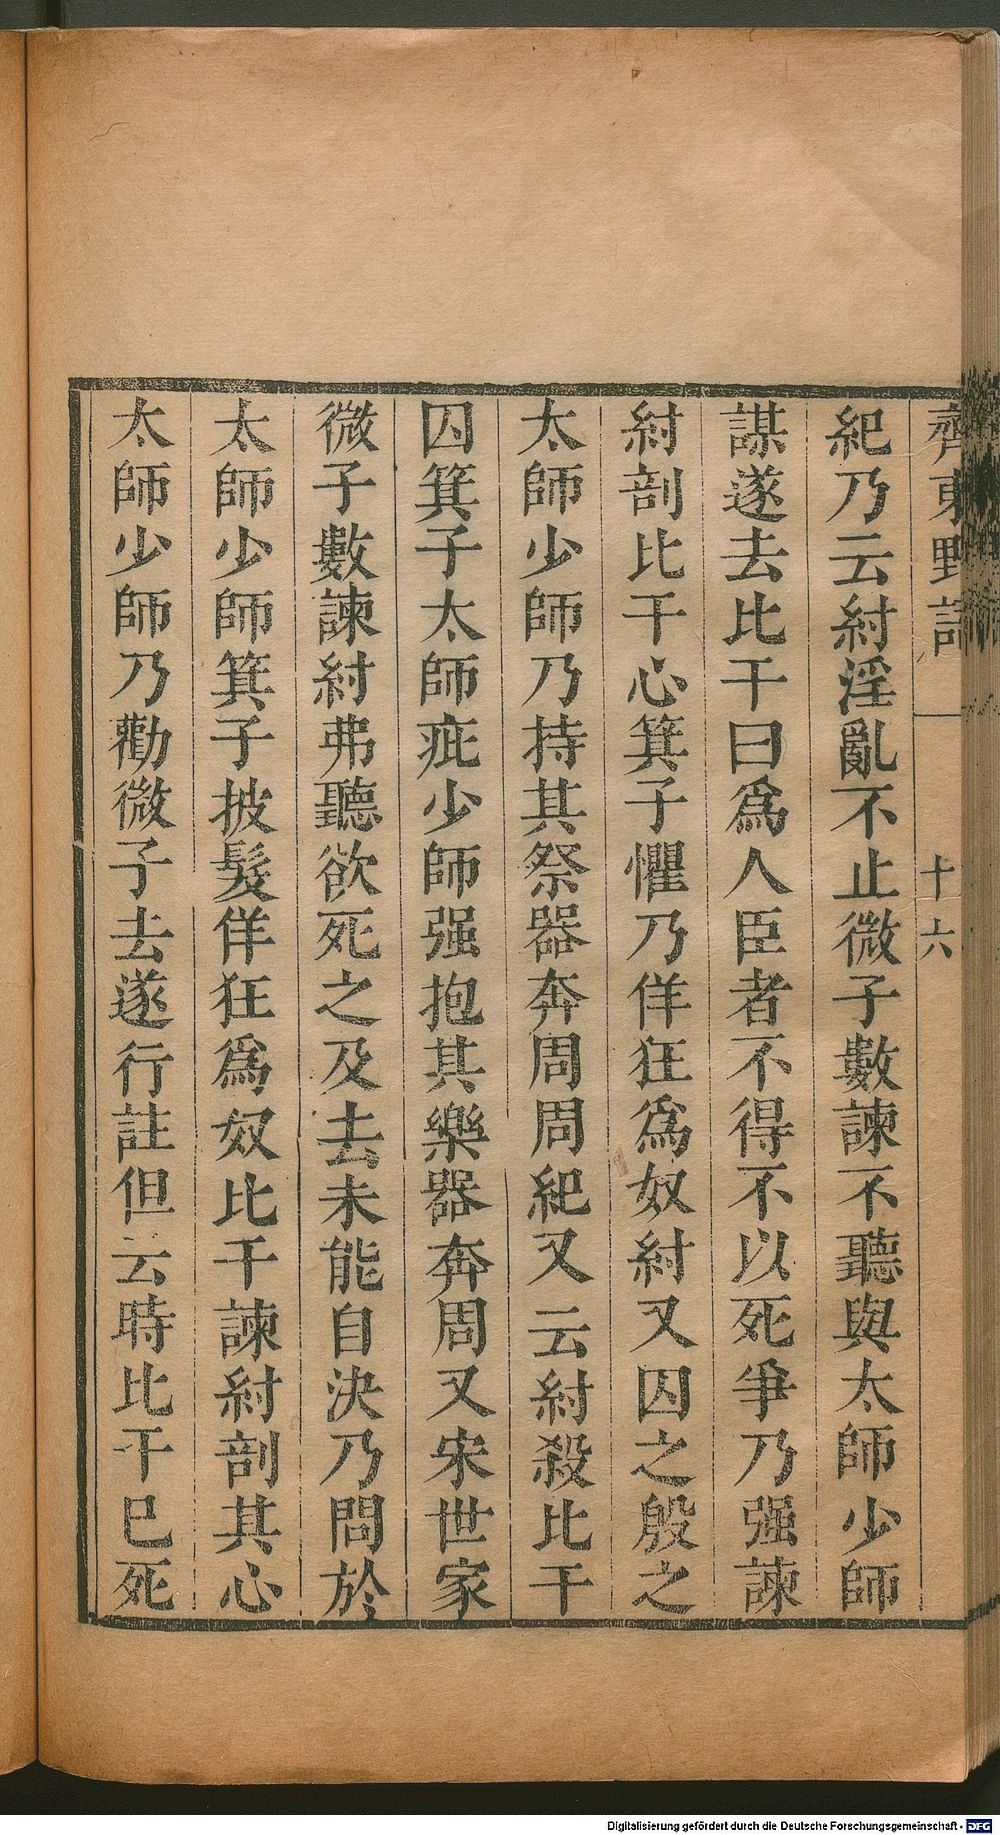 齊東野語 十六
紀乃云紂淫亂不止微子數諫不聽與太師少師
謀遂去比干曰爲人臣者不得不以死爭乃强諫
紂剖比干心箕子懼乃佯狂爲奴紂又囚之殷之
太師少師乃持其祭器奔周周紀又云紂殺比干
囚箕子太師疵少師强抱其樂器奔周又宋世家
微子數諫紂弗聽欲死之及去未能自決乃問於
太師少師箕子披髮佯狂爲奴比干諫紂剖其心
太師少師乃勸微子去遂行註但云時比干巳死
Digitalisierung gefördert durch die Deutsche Forschungsgemeinschaft - DFG